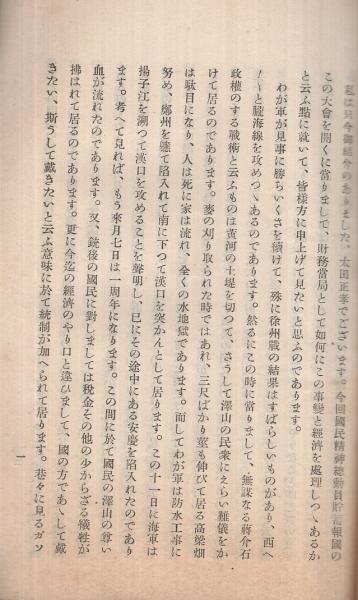 私は只今御紹介のありました、太田正孝でございます。今回國民精神總動員貯蓄報國の
この大會を開くに當りまして、財務當局として如何にこの事變と經濟を處理しつゝあるか
と云ふ點に就いて、皆樣方に申上げて見たいと思ふのであります。
わが軍が見事に勝ちいくさを續けて、殊に徐州戰の結果はすばらしいものがあり、西へ
〳〵と隴海線を攻めつゝあるのであります。然るにこの時に當りまして、無謀なる蔣介石
政權のする戰術と云ふものは黃河の土堤を切つて、さうして澤山の民衆にえらい難儀をか
けて居るのであります。麥の刈り取られた時ではあれ、三尺ばかり莖も伸びて居る高粱畑
は駄目になり、人は死に家は流れ、全くの水地獄であります。而してわが軍は防水工事に
努め、鄭州を經て陷入れて南に下つて漢口を突かんとして居ります。この十一日に海軍は
揚子江を溯つて漢口を攻めることを聲明し、已にその途中にある安慶を陷入れたのであり
ます。考へて見れば、もう來月七日は一周年になります。この間に於て國民の澤山の尊い
血が流れたのであります。又、銃後の國民に對しましては稅金その他の少からざる犧牲が
拂はれて居るのであります。更に今迄の經濟のやり口と違ひまして、國の方であゝして戴
きたい、斯うして戴きたいと云ふ意味に於て統制が加へられて居ります。巷々に見るガソ
一